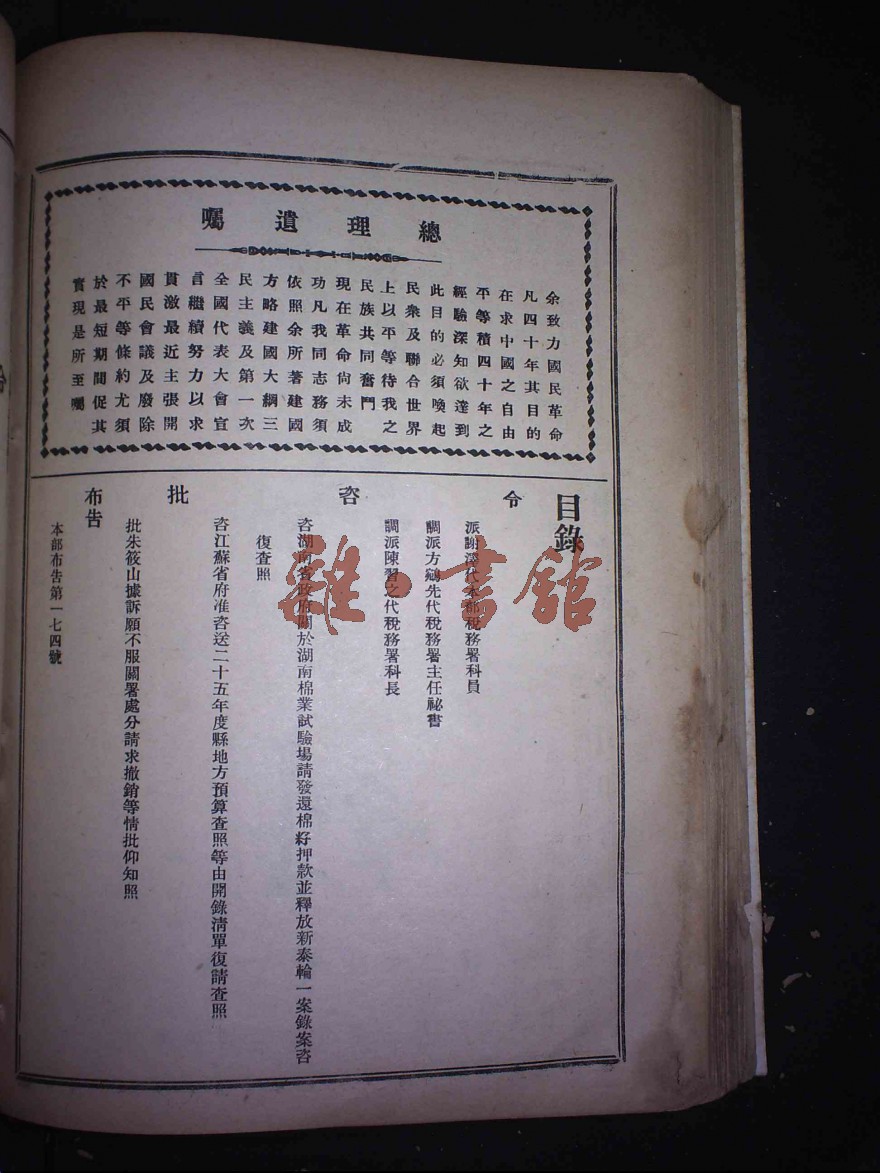 總理遺囑
余致力國民革命
凡四十年其目的
在求中國之自由
平等積四十年之
經驗深知欲達到
此目的必須喚起
民衆及聯合世界
上以平等待我之
民族共同奮鬥
現在革命尙未成
功凡我同志務須
依照余所著建國
方略建國大綱三
民主義及第一次
全國代表大會宣
言繼續努力以求
貫澈最近主張開
國民會議及廢除
不平等條約尤須
於最短期間促其
實現是所至囑
目錄
令
派謝澤代本部稅務署科員
調派方先代稅務署主任祕書
調派陳習之代稅務署科長
咨
咨湖南省政府關於湖南棉業試驗場請發還棉籽押款並釋放新泰輪一案錄案咨
復查照
咨江蘇省府准咨送二十五年度縣地方預算查照等由開錄清單復請查照
批
批朱筱山據訴願不服關署處分請求撤銷等情批仰知照
布告
本部布告第一七四號
雜·書館